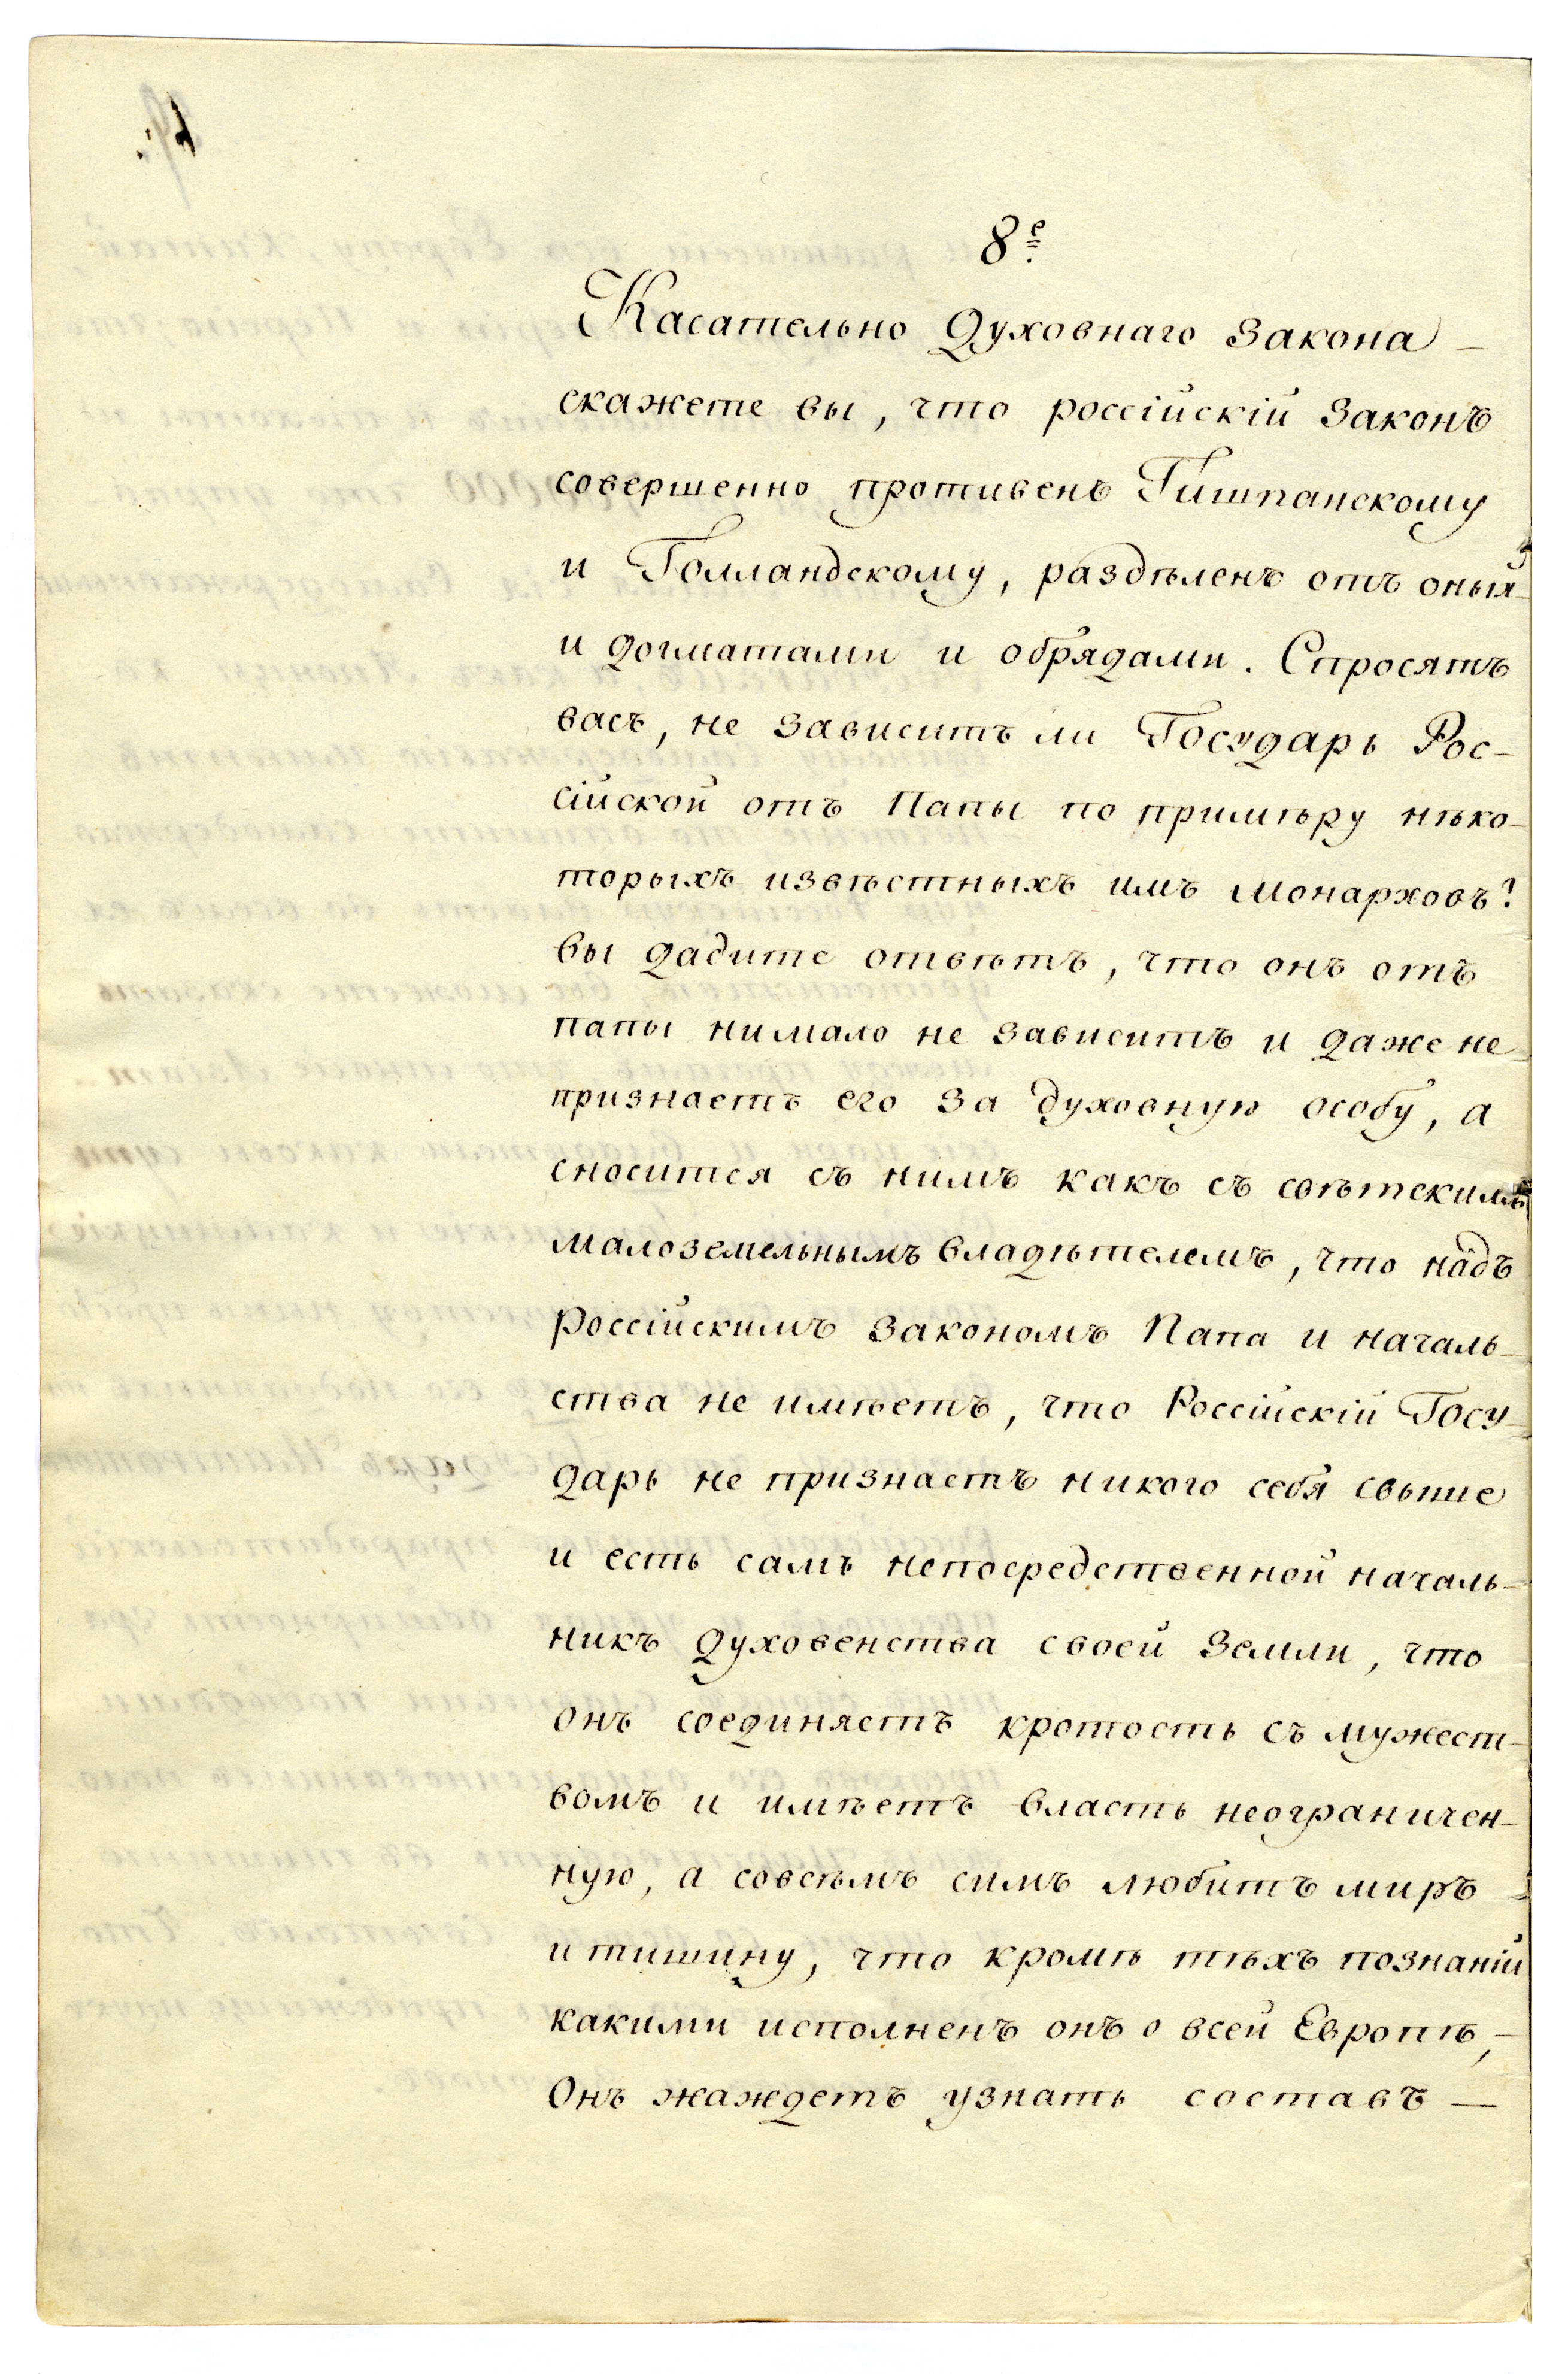 8е
Касательно Духовнаго Закона —
скажете вы, что россійскій Законъ
совершенно противенъ Гишпанскому
и Голландскому, раздѣленъ отъ оныхъ
и догматами и обрядами. Спросятъ
васъ, не зависитъ ли Государь Рос-
сійской отъ Папы по примѣру нѣко-
торыхъ извѣстныхъ имъ Монарховъ?
вы дадите отвѣтъ, что онъ отъ
папы нимало не зависитъ и даже не
признаетъ его за духовную особу, а
сносится съ нимъ какъ съ свѣтскимъ
малоземельнымъ владѣтелемъ, что надъ
Россійскимъ Закономъ Папа и началь-
ства не имѣетъ, что Россійскій Госу-
дарь не признаетъ никого себя свыше
и есть самъ непосредственной началь-
никъ духовенства своей Земли, что
онъ соединяетъ кротость съ мужест-
вомъ и имѣетъ власть неограничен-
ную, а совсѣмъ симъ любитъ миръ
и тишину, что кромѣ тѣхъ познаній
какими исполненъ онъ о всей Европѣ,—
Онъ жаждетъ узнать составъ —